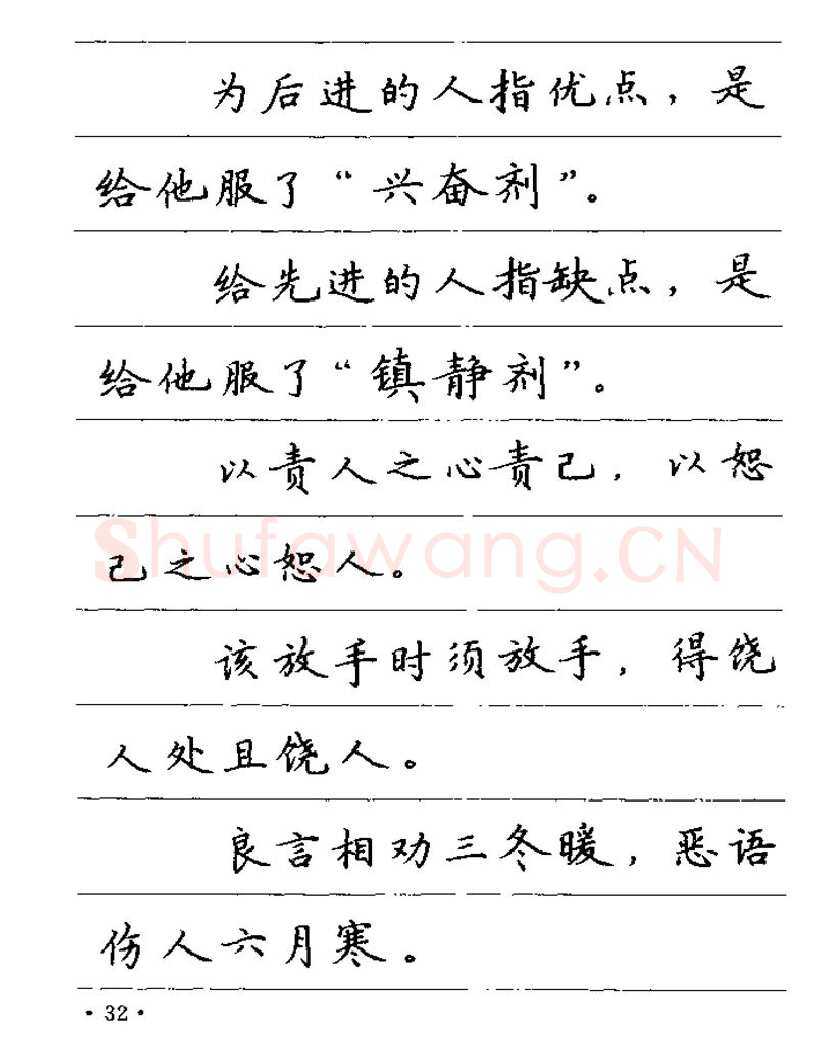 为后进的人指优点，是
给他服了“兴奋剂”。
给先进的人指缺点，是
给他服了“镇静剂”。
以责人之心责己，以恕
己之心恕人。
该放手时须放手，得饶
人处且饶人。
良言相劝三冬暖，恶语
伤人六月寒。
Shufawang.CN
·32·